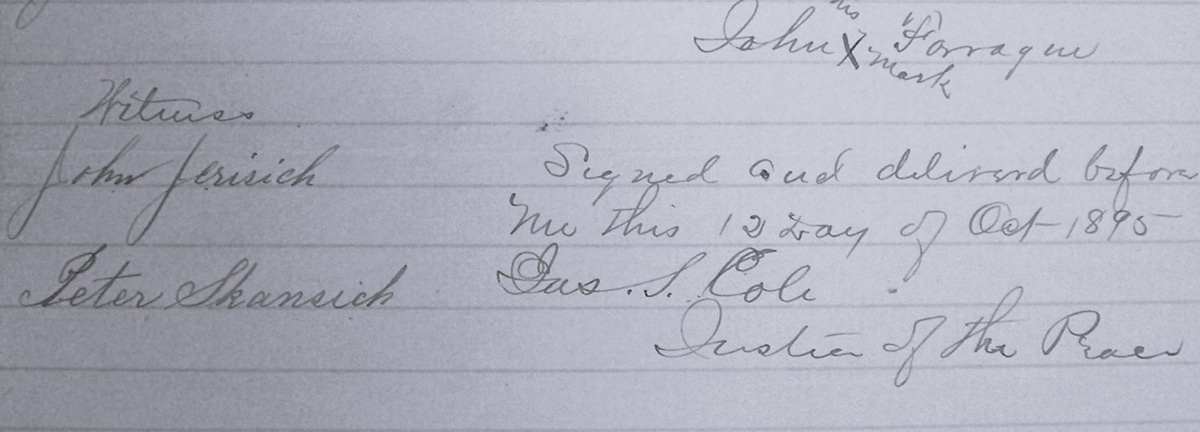 John his X mark Forrague
Witness
John Jerisich
Signed and deliverd before
me this 12 Day of Oct 1895
Peter Skansich
Jas. S. Cole
Justice of the Peace